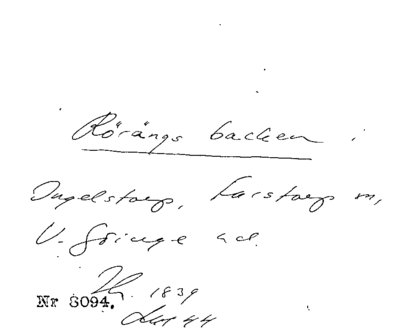 Rörängs backen i
Ingelstorp, Farstorp sn,
V. Göinge hd.
Th. 1839
Nr 8094.
Lut 44